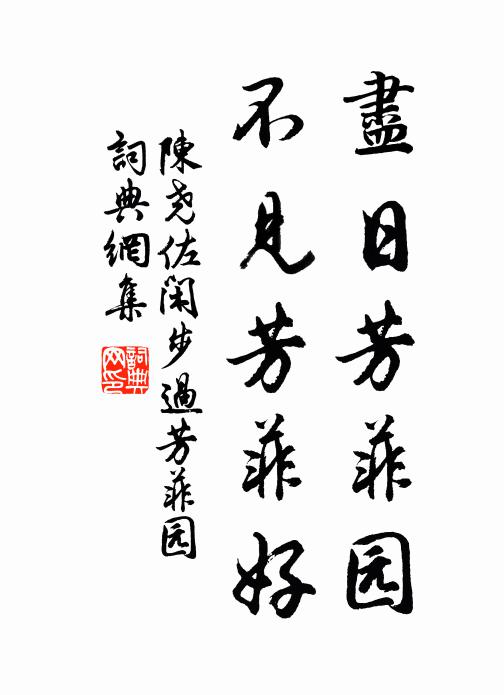 盡日芳菲园
不見芳菲好
陳尧佐閑步過芳菲园
詞典網集
詞典网印